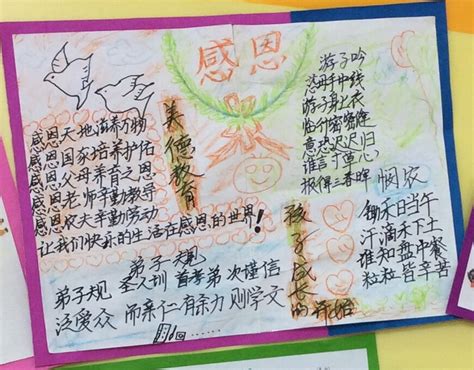 感恩
感恩天地滋养万物
感恩国家培养护佑
感恩父母养育之恩
感恩老师辛勤教导
感恩农夫辛勤劳动
让我们快乐的生活在感恩的世界!
美德教育
孩子成长的
游子吟
慈母手中线
游子身上衣
临行密密缝
意恐迟迟归
谁言寸草心
报得三春晖
悯农
锄禾日当午
汗滴禾下土
谁知盘中餐
粒粒皆辛苦
弟子规
弟子规 圣人训 首孝弟 次谨信
泛爱众 而亲仁 有余力 则学文